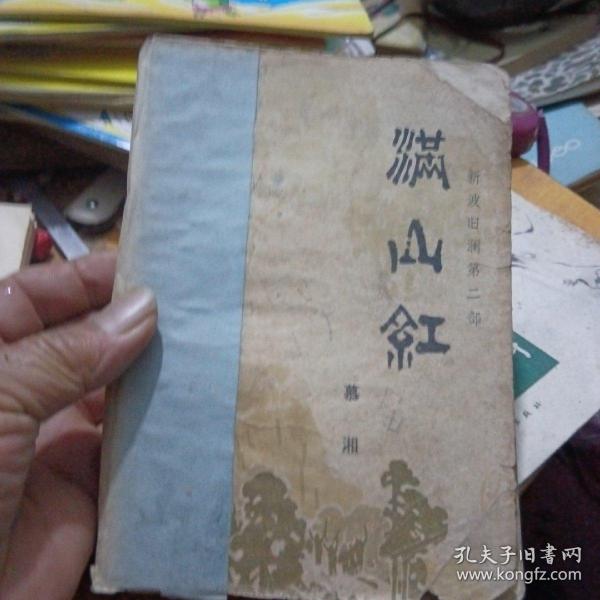 满山紅
新波旧澜第二部
慕湘
孔夫子旧書网
www.kongfz.com